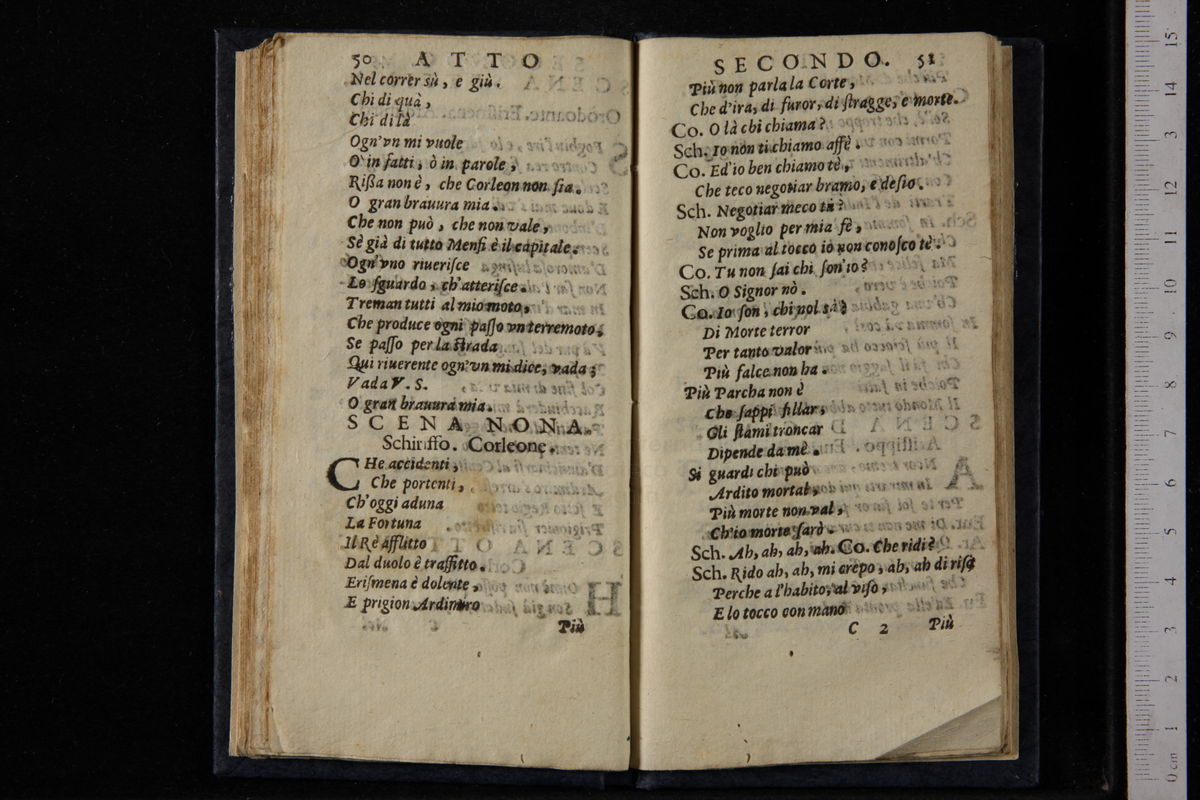 50 ATTO
Nel correr sù, e giù.
Chi di quà,
Chi di là
Ogn'vn mi vuole
O in fatti, ò in parole,
Rißa non è, che Corleon non ſia.
O gran brauura mia.
Che non può, che non vale,
Sè già di tutto Menfi è il capitale.
Ogn'vno riueriſce
Lo ſguardo, ch'atteriſce.
Treman tutti al mio moto,
Che produce ogni paſſo vn terremoto,
Se paſſo per la ſtrada
Qui riuerente ogn'vn mi dice, vada;
Vada V. S.
O gran brauura mia.
SCENA NONA.
Schiriffo. Corleone.
CHe accidenti,
Che portenti,
Ch'oggi aduna
La Fortuna
Il Rè afflitto
Dal duolo è traffitto.
Eriſmena è dolente,
E prigion Ardimiro
Più
SECONDO. 51
Più non parla la Corte,
Che d'ira, di furor, di ſtragge, e morte.
Co. O là chi chiama?
Sch. Io non ti chiamo affè.
Co. Ed'io ben chiamo tè,
Che teco negotiar bramo, e deſio.
Sch. Negotiar meco tù?
Non voglio per mia fè,
Se prima al tocco io non conoſco tè.
Co. Tu non ſai chi ſon'io?
Sch. O Signor nò.
Co. Io ſon, chi nol sà?
Di Morte terror
Per tanto valor
Più falce non ha.
Più Parcha non è
Che ſappi fillar,
Gli ſtami troncar
Dipende da mè.
Si guardi chi può
Ardito mortal,
Più morte non val,
Ch'io morte ſarò.
Sch. Ah, ah, ah, ah. Co. Che ridi?
Sch. Rido ah, ah, mi crepo, ah, ah di riſa
Perche a l'habito, al viſo,
E lo tocco con mano
C 2 Più
15
14
13
12
11
10
9
8
7
6
5
4
3
2
1
0 cm